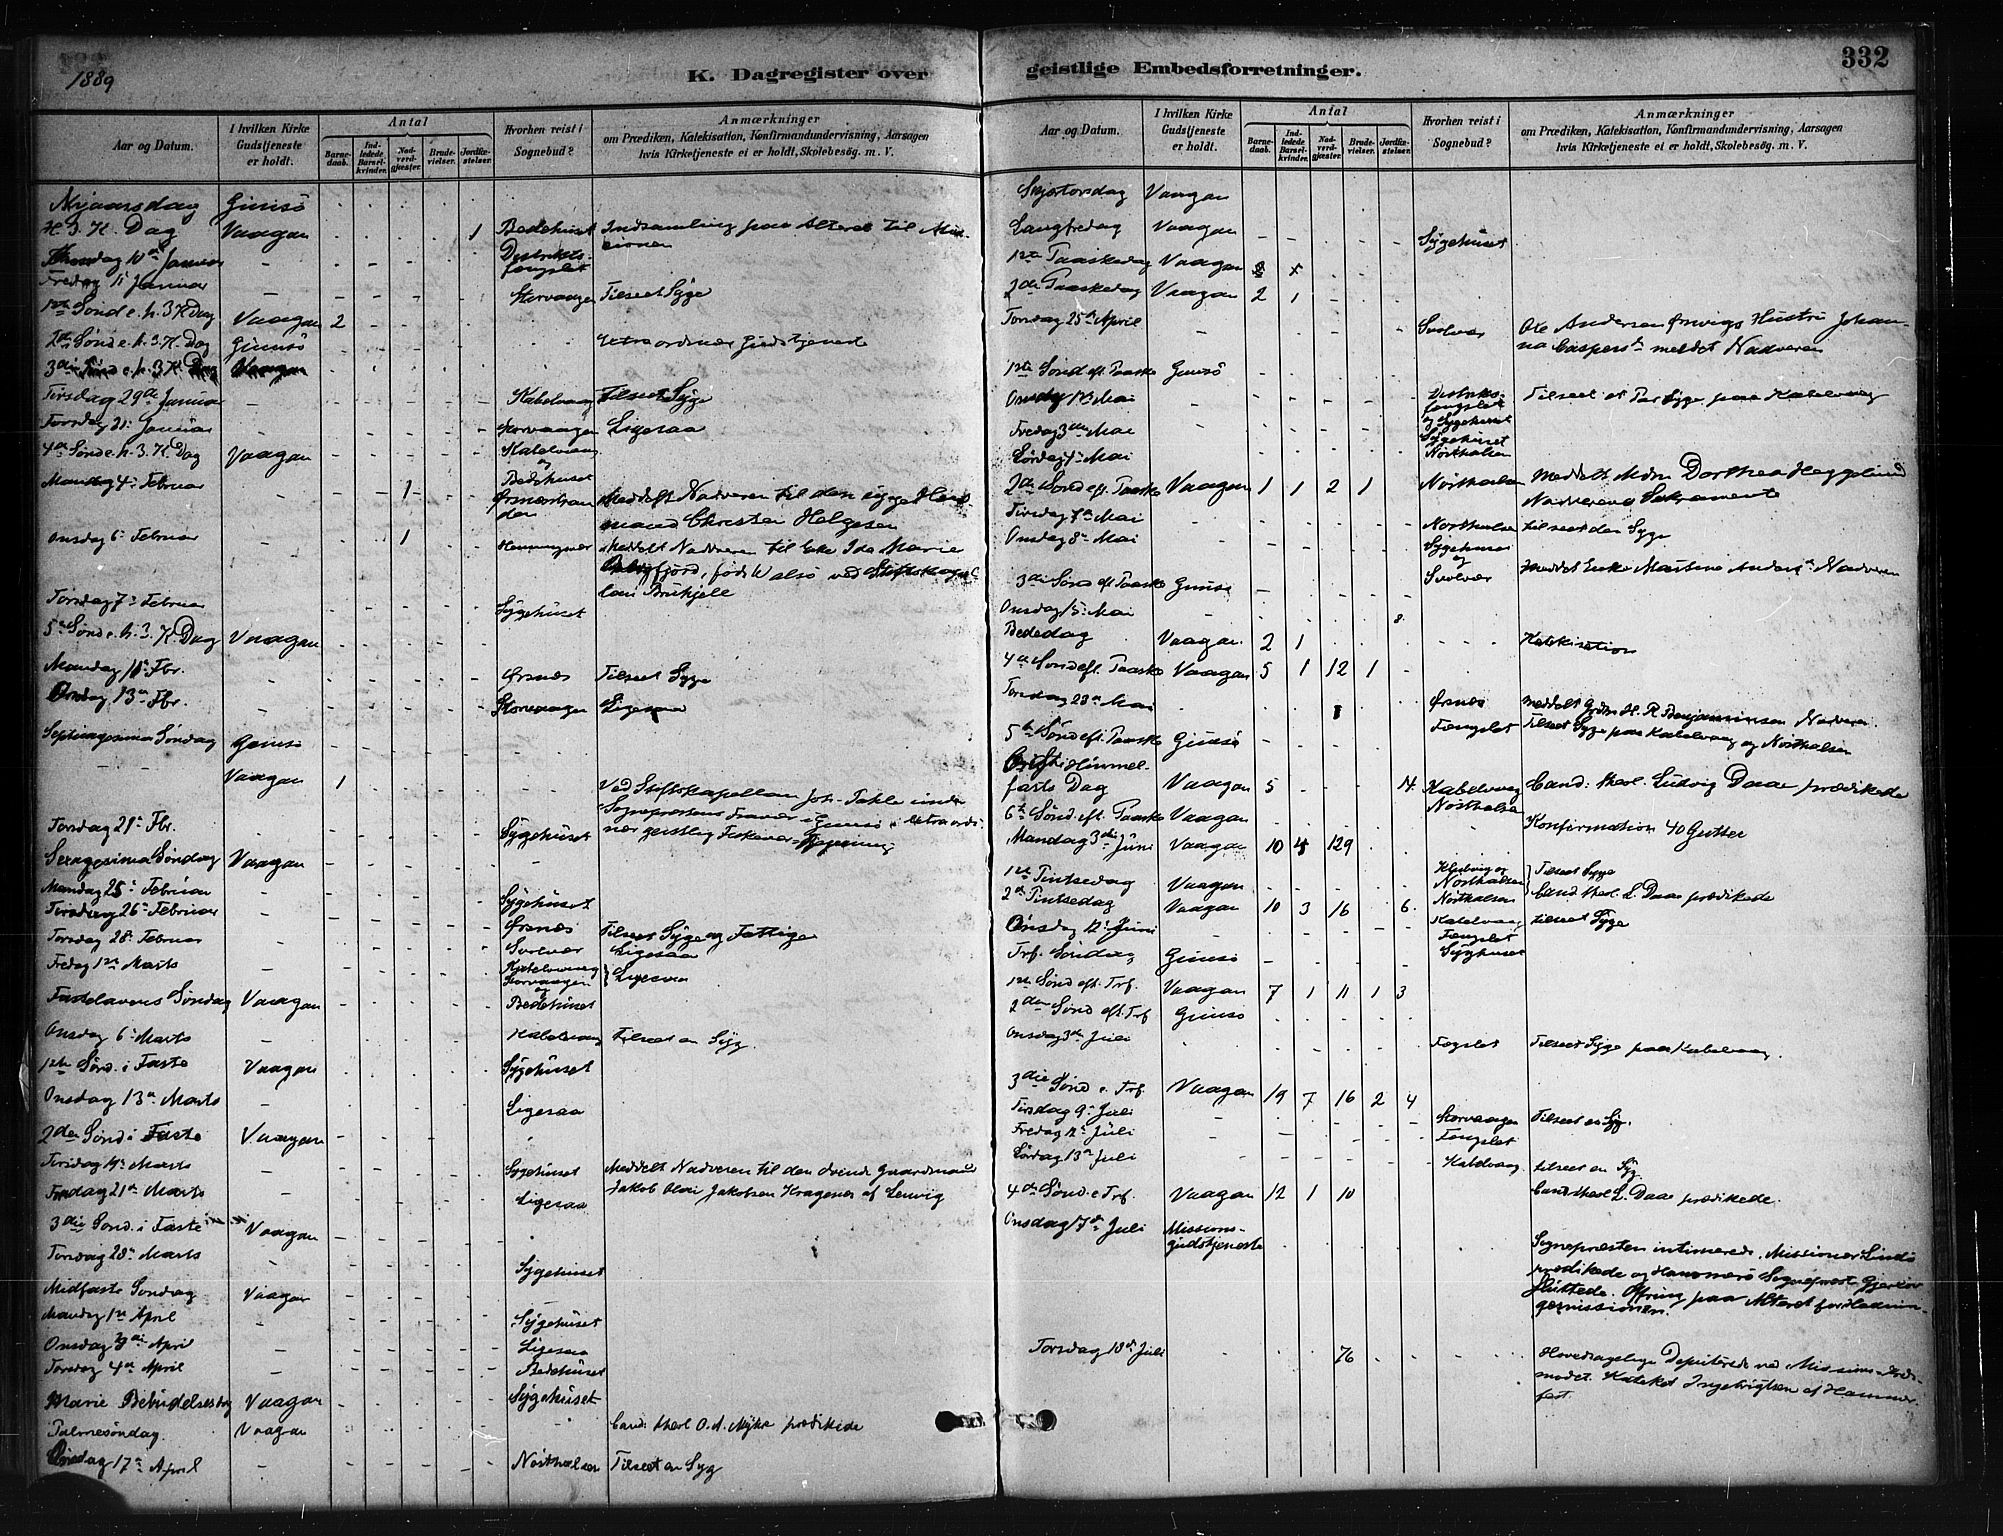 1889
K. Dagregister over
Aar og Datum.
I hvilken Kirke Gudstjeneste er holdt.
Antal
Barnedaab.
Indledede Barselkvinder.
Nadverdgjester.
Brudevielser.
Jordfæstelser.
Hvorhen reist i Sognebud?
Anmærkninger
om Prædiken, Katekisation, Konfirmandundervisning, Aarsagen
hvis Kirketjeneste ei er holdt, Skolebesøg. m. V.
Nyaarsdag Gimsø
H. 3. K. Dag Vaagan 1 Bedehuset Indsamling paa Alteret til Mis-
sionen
10de Januar Distrikts-
fængslet
Fredag 11 Januar Storvaagen Tilseet Syge
1ste Sønd e. h. 3 K Dag Vaagan 2
2den Sønd e. h. 3. K. Dag Gimsø Extraordinær Gudstjeneste
3die Sønd e. h. 3 K Dag Vaagan
Tirsdag 29de Januar Kabelvaag Tilseet Syge
Torsdag 31 Januar Storvaagen Ligesaa
4de Sønd e. h. 3. K. Dag Vaagan Kabelvaag
og
Bedehuset
Mandag 4de Februar 1 Meddelt Nadveren til den syge
mand Christen Helgesen
Onsdag 6 Februar 1 Henningsvær Meddelt Nadveren til Enke Ida Marie
født ved
Torsdag 7 Februar Sygehuset
5te Sønd e. h. 3. K. Dag Vaagan
Mandag 11 Fbr. Ørsnes Tilseet Syge
Onsdag 13de Fbr. Storvaagen Ligesaa
Septuagesima Søndag Gimsø
Vaagan 1 Ved Stiftskapellan Joh. Takle under
Sogneprestens Fravær i Gimsø i extraordi-
nær geistlig
Torsdag 21 Fbr. Sygehuset
Sexagesima Søndag Vaagan
Mandag 25 Februar Sygehuset
Tirsdag 26 Februar Ørsnes Tilseet Syge og Fattige
Torsdag 28 Februar Svolvær Ligesaa
Fredag 1ste Marts Kabelvaag
Storvaagen Ligesaa
og
Fastelavens Søndag Vaagan Bedehuset
Onsdag 6 Marts Kabelvaag Tilseet en Syg.
1ste Sønd. i Faste Vaagan Sygehuset
Onsdag 13de Marts Ligesaa
2den Sønd i Faste Vaagan
Tirsdag 19 Marts Sygehuset Meddelt Nadveren til den døende Gaardmand
Jakob Olai Jakobsen Kragenes af Lenvig
21de Marts Ligesaa
3die Sønd. i Faste Vaagan
Torsdag 28 Marts Sygehuset
Midfaste Søndag Vaagan
Mandag 1ste April Sygehuset
Onsdag 3die April Ligesaa
Torsdag 4de April Bedehuset
Marie Bebudelsesdag Vaagan Sygehuset
Palmesøndag Vaagan Cand. theol O. A. Myhre prædikede
Onsdag 17de April Nøsthalsen Tilseet en Syg
geistlige Embedsforretninger.
332
Aar og Datum.
I hvilken Kirke Gudstjeneste er holdt.
Antal
Barnedaab.
Indledede Barselkvinder.
Nadverdgjester.
Brudevielser.
Jordfæstelser.
Hvorhen reist i Sognebud?
Anmærkninger
om Prædiken, Katekisation, Konfirmandundervisning, Aarsagen
hvis Kirketjeneste ei er holdt, Skolebesøg. m. V.
Skjærtorsdag Vaagan
Langfredag Vaagan Sygehuset
1ste Paaskedag Vaagan
2den Paaskedag Vaagan 2 1
Torsdag 25de April Svolvær Ole Andersen Ørsvigs Hustru Johan-
na meddelt Nadveren
1ste Sønd eft. Paaske Gimsø
Onsdag 1ste Mai Distrikts-
fængslet
og Sygehuset
Tilseet et Par Syge paa Kabelvaag
Fredag 3die Mai Sygehuset
Lørdag 4 Mai Nøsthalsen
2den Sønd eft. Paaske Vaagan 1 1 2 1 Nøsthalsen Meddelt Mdm Dorthea Hegglund
Nadverens Sakramente
Tirsdag 7de Mai Nøsthalsen tilseet den Syge
Onsdag 8de Mai Sygehuset
og
Svolvær Meddelt Enke Martine Anders. Nadveren
3die Sønd eft. Paaske Gimsø
Onsdag 15 Mai 8
Bededag Vaagan 2 1 Katekisation
4de Sønd eft. Paaske Vaagan 5 1 12 1
Torsdag 23de Mai 1 Ørsnes Meddelt H. R. Benjaminsen Nadveren
Fængslet Tilseet Syge paa Kabelvaag og Nøsthalsen
5te Sønd eft. Paaske Gimsø
Christi Himmel-
farts Dag Vaagan 5 4 Kabelvaag Cand. theol. Ludvig Daae prædikede
Nøsthalsen
6te Sønd eft. Paaske Vaagan Konfirmation 40 Gutter
Mandag 3die Juni Vaagan 10 4 129
1ste Pintsedag Vaagan
Nøsthalsen Tilseet Syge
2den Pintsedag Vaagan 10 3 16 6 Nøsthalsen Cand theol. L. Daae prædikede
Onsdag 12 Juni Kabelvaag tilseet Syge
Fængslet
Trf. Søndag Gimsø Sygehuset
1ste Sønd eft. Trf. Vaagan 7 1 11 1 3
2den Sønd eft. Trf Gimsø
Onsdag 3die Juli Fængslet Tilseet Syge paa Kabelvaag.
3die Sønd e. Trf. Vaagan 19 7 16 2 4
Tirsdag 9 Juli Storvaagen Tilseet en Syg.
Fredag 12 Juli Fængslet
Lørdag 13de Juli Kabelvaag tilseet en Syg
4de Sønd. e Trf. Vaagan 12 1 10 Cand theol L. Daae prædikede.
Onsdag 17de Juli Missions-
gudstjeneste
Sognepræsten intimerede, Missionær Lindø
prædikede og Hammerø Sognepræst Gjerløw
sluttede. Ofring paa Alteret for Hednin-
gemissionen.
Torsdag 18de Juli 76 Hovedsagelige Deputerede ved Missions-Kreds-
mødet. Kateket Ingebrigtsen af Hammer-
fest.